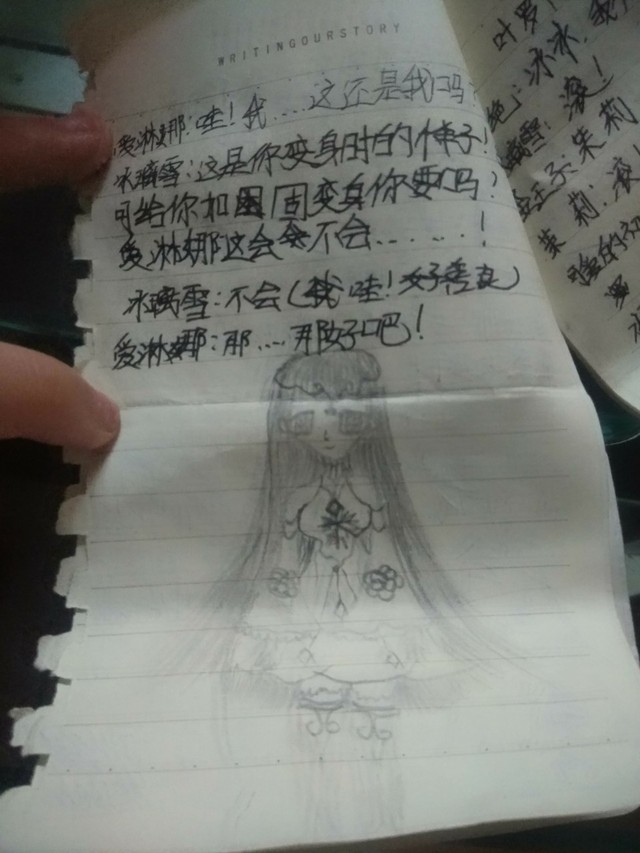 WRITINGOURSTORY
爱淋娜:哇!我....这还是我吗
冰璃雪:这是你变身时的样子!
可给你加固变身你要吗?
爱淋娜这会会不会......!
冰璃雪:不会(我哇!好善良)
爱淋娜:那....那好吧!
叶罗
冰冰,我
雪:滚!
王子:茱莉
茱莉:滚!